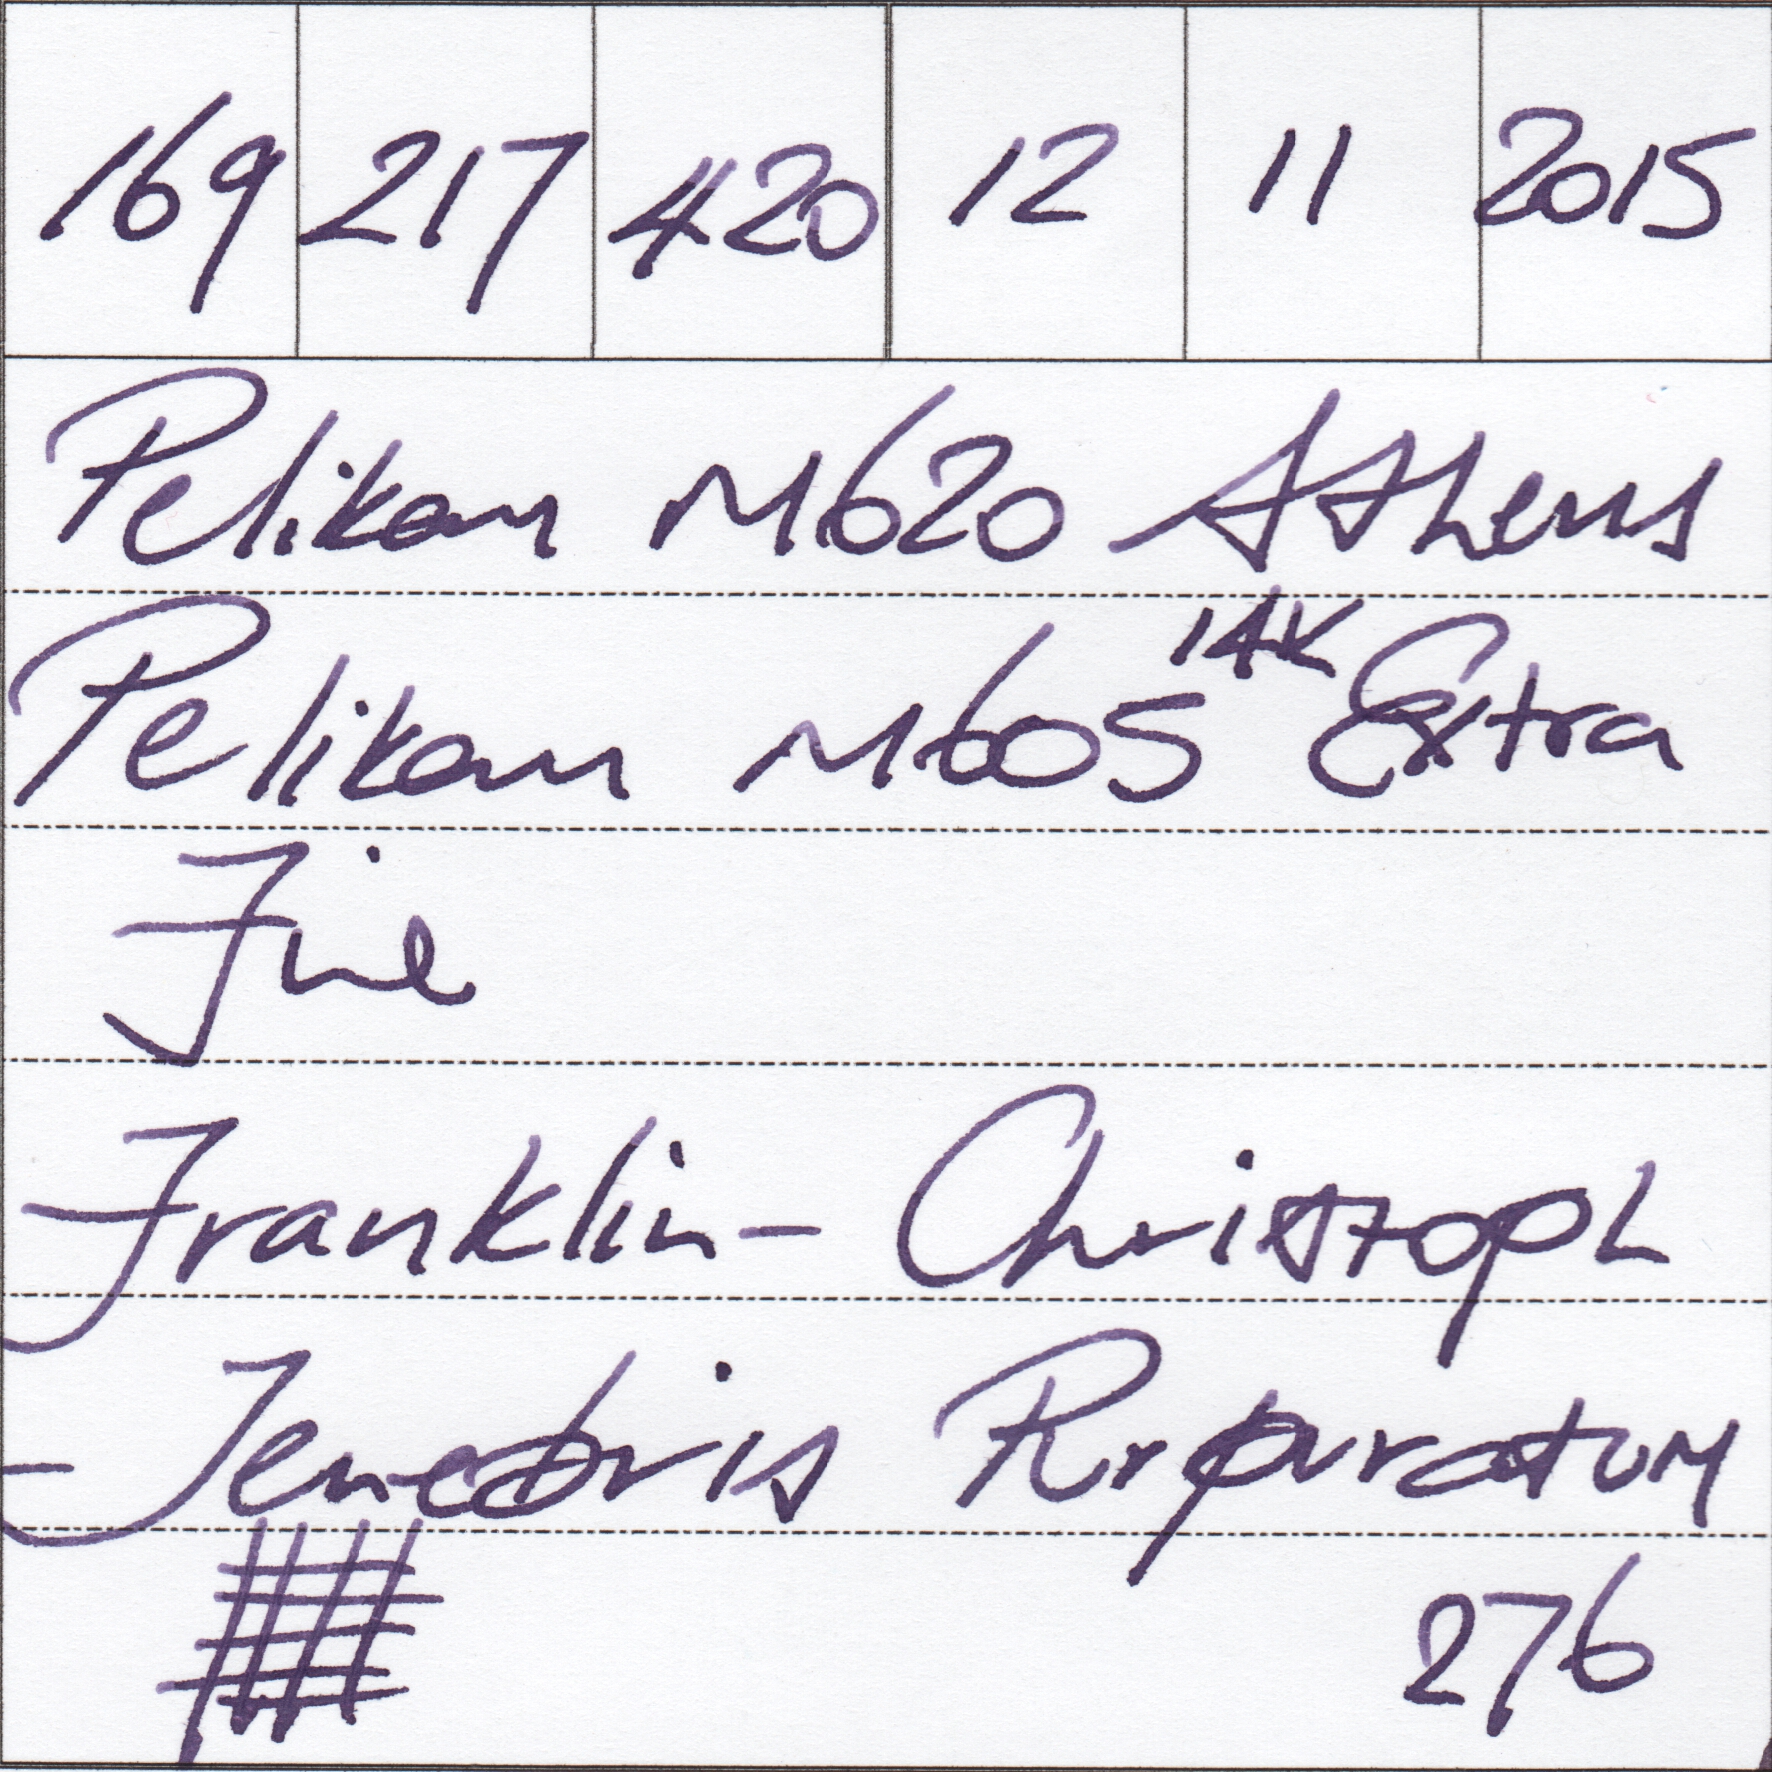 169 217 420 12 11 2015
Pelikan M620 Athens
Pelikan M605 14K Extra
Fine
Franklin- Christoph
- Tenebris Purpuratum
276